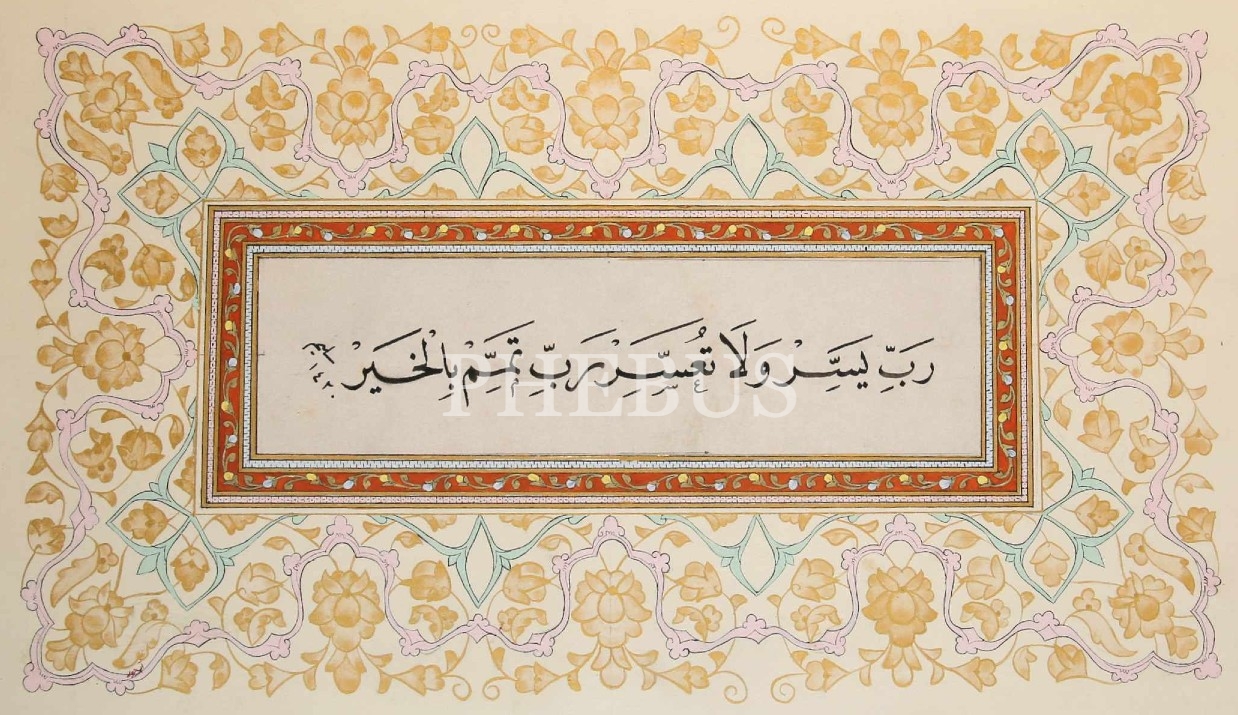 رَبِّ يَسِّرْ وَلَا تُعَسِّرْ رَبِّ تَمِّمْ بِالْخَيْرْ
PHEBUS